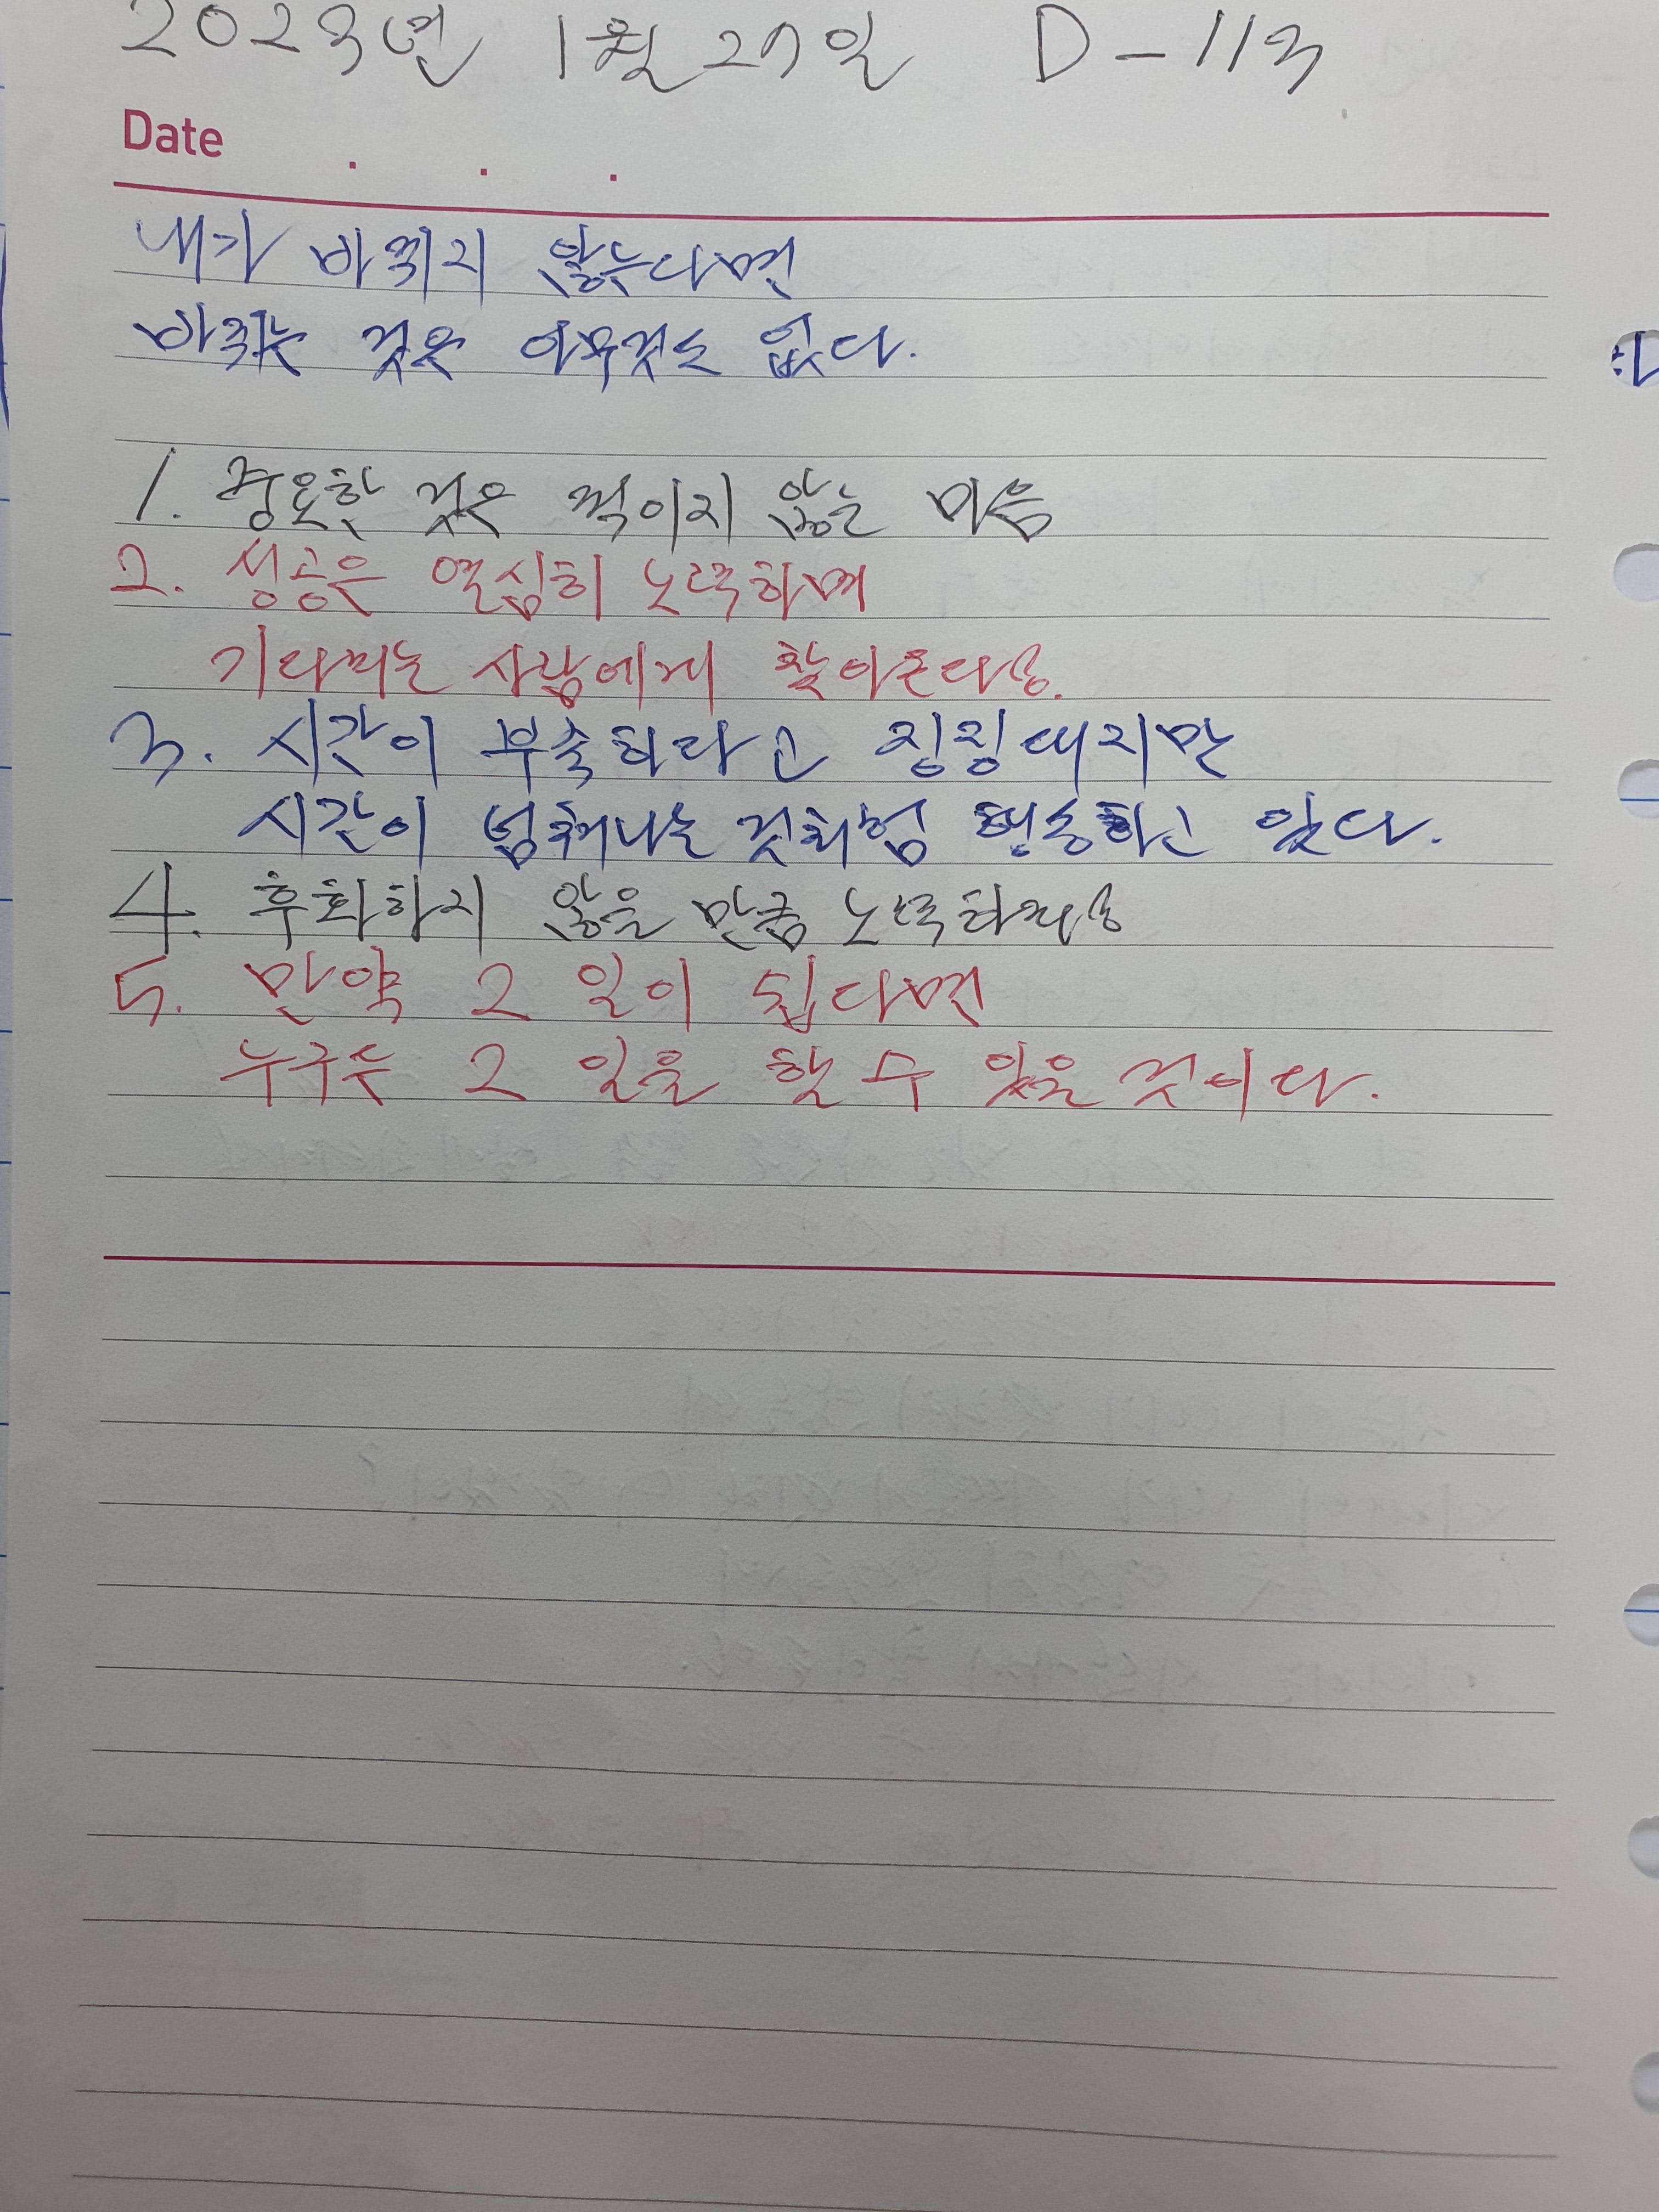 2023년 1월 27일 D-113
Date . . .
내가 바뀌지 않는다면
바뀌는 것은 아무것도 없다.
1. 중요한 것은 꺾이지 않는 마음
2. 성공은 열심히 노력하며
기다리는 사람에게 찾아온다.
3. 시간이 부족하다고 징징대지만
시간이 넘쳐나는 것처럼 행동하고 있다.
4. 후회하지 않을 만큼 노력하자
5. 만약 그 일이 쉽다면
누구든 그 일을 할 수 있을 것이다.